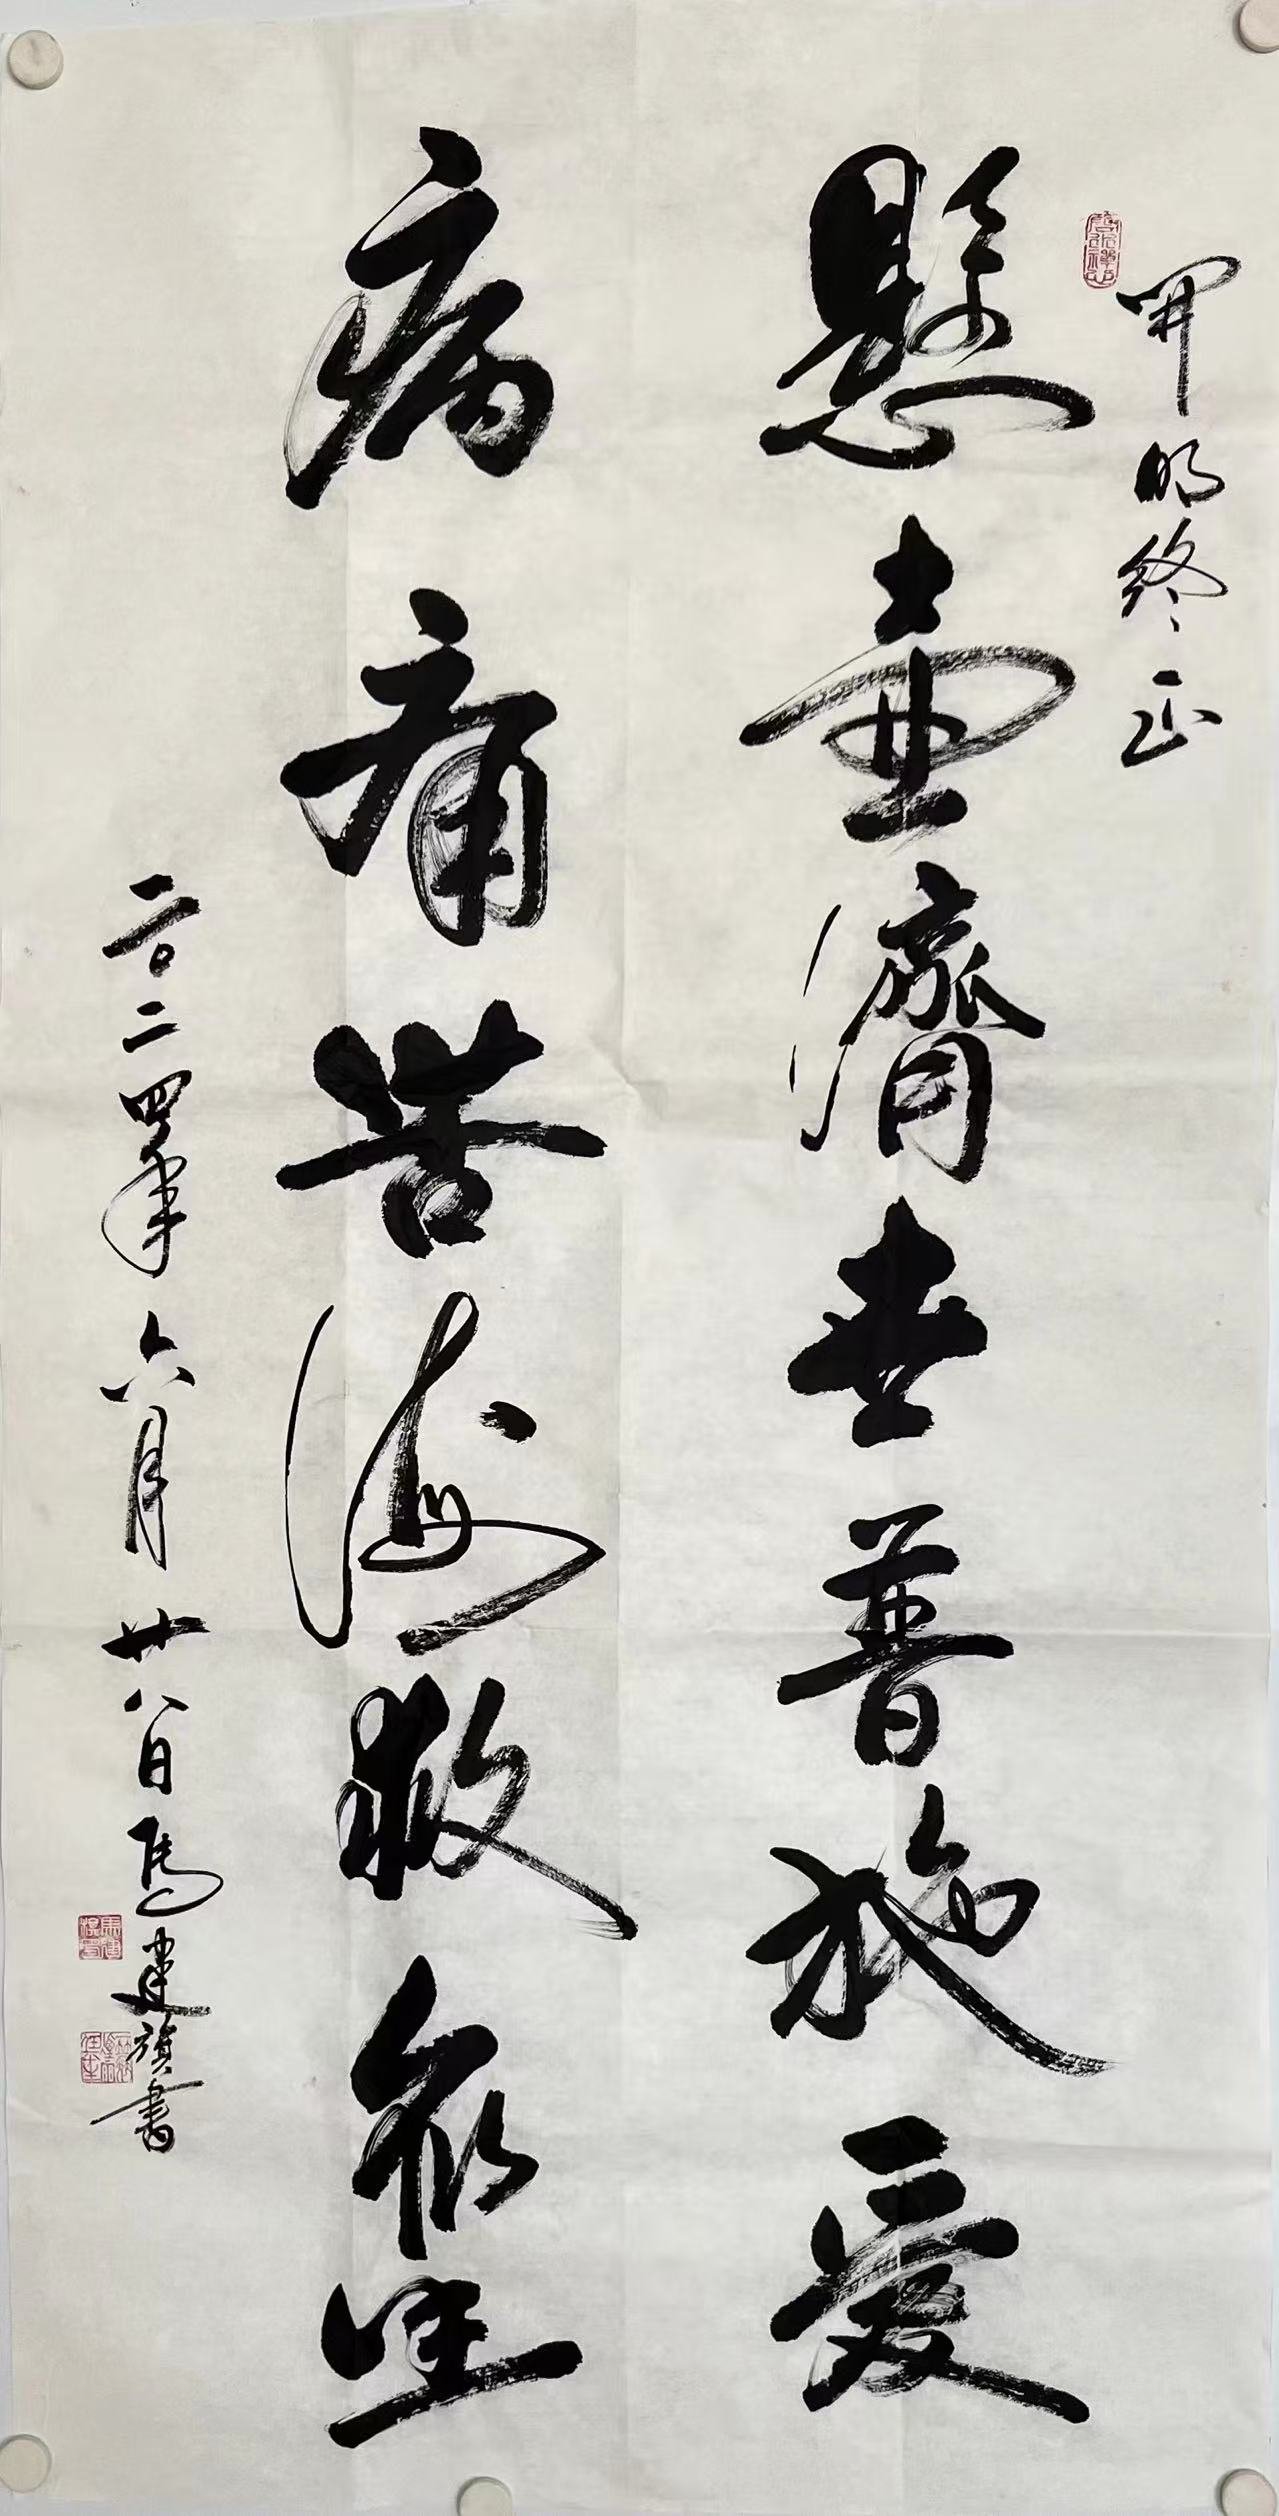 開明終正
懸壺濟世普施愛
病痛苦海救众生
二〇二四年六月廿八日馬建旗書